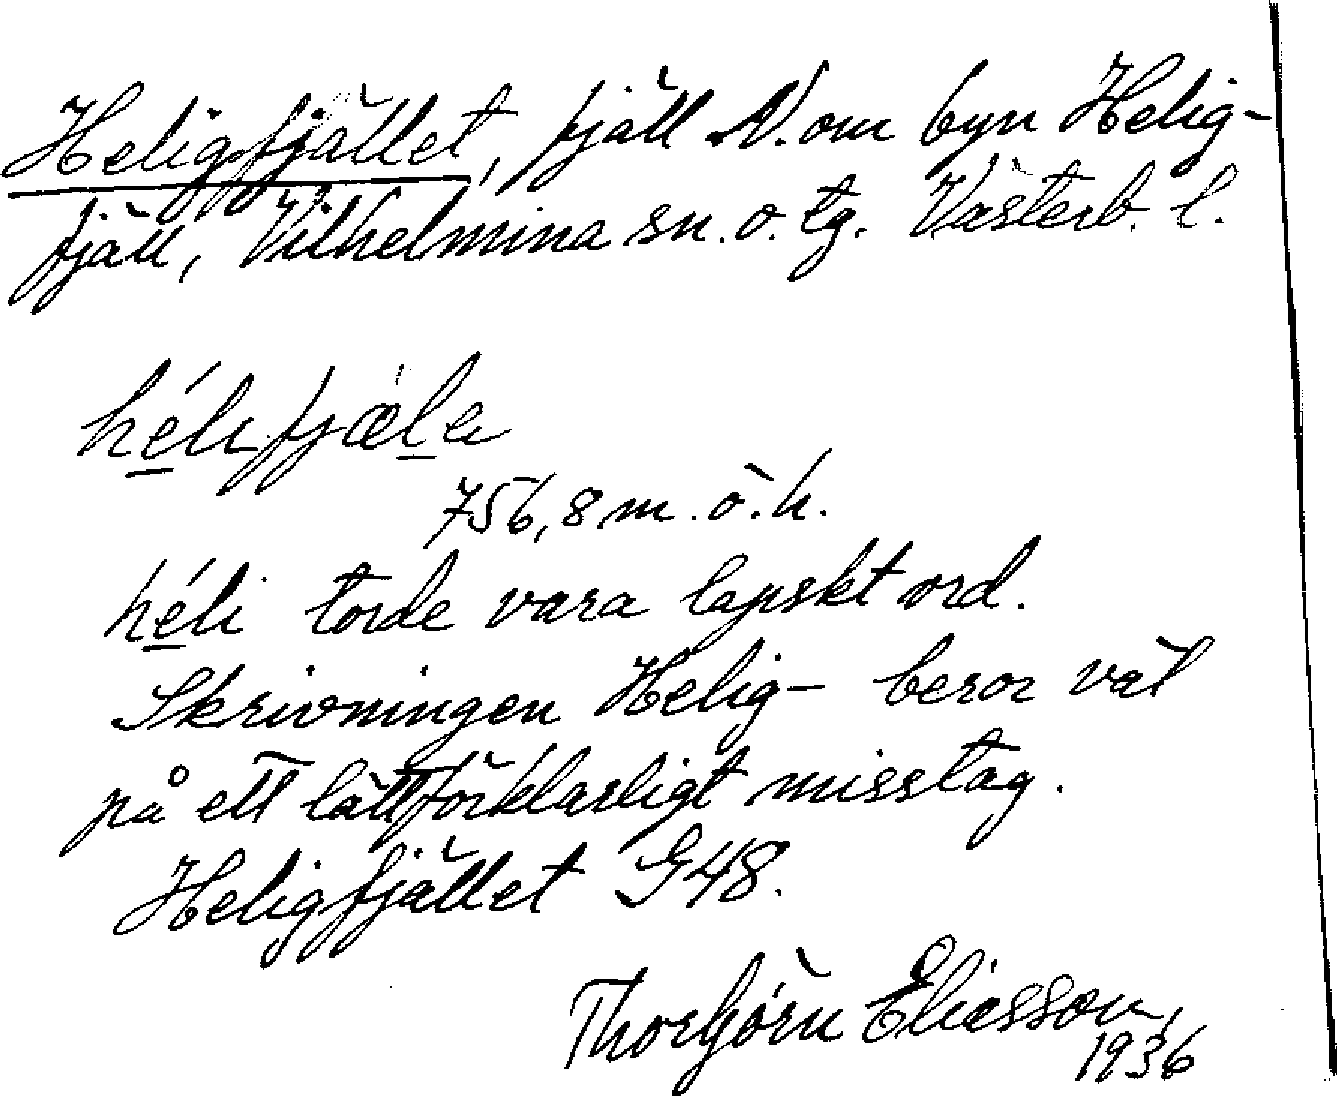 Heligfjället, fjäll N. om byn Helig-
fjäll, Vilhelmina sn. o. tg. Västerb. l.
hélifjæla
756,8 m. ö. h.
héli torde vara lapskt ord.
Skrivningen Helig- beror väl
på ett lättförklarligt misstag.
Heligfjället G48.
Thorbjörn Eliasson,
1936